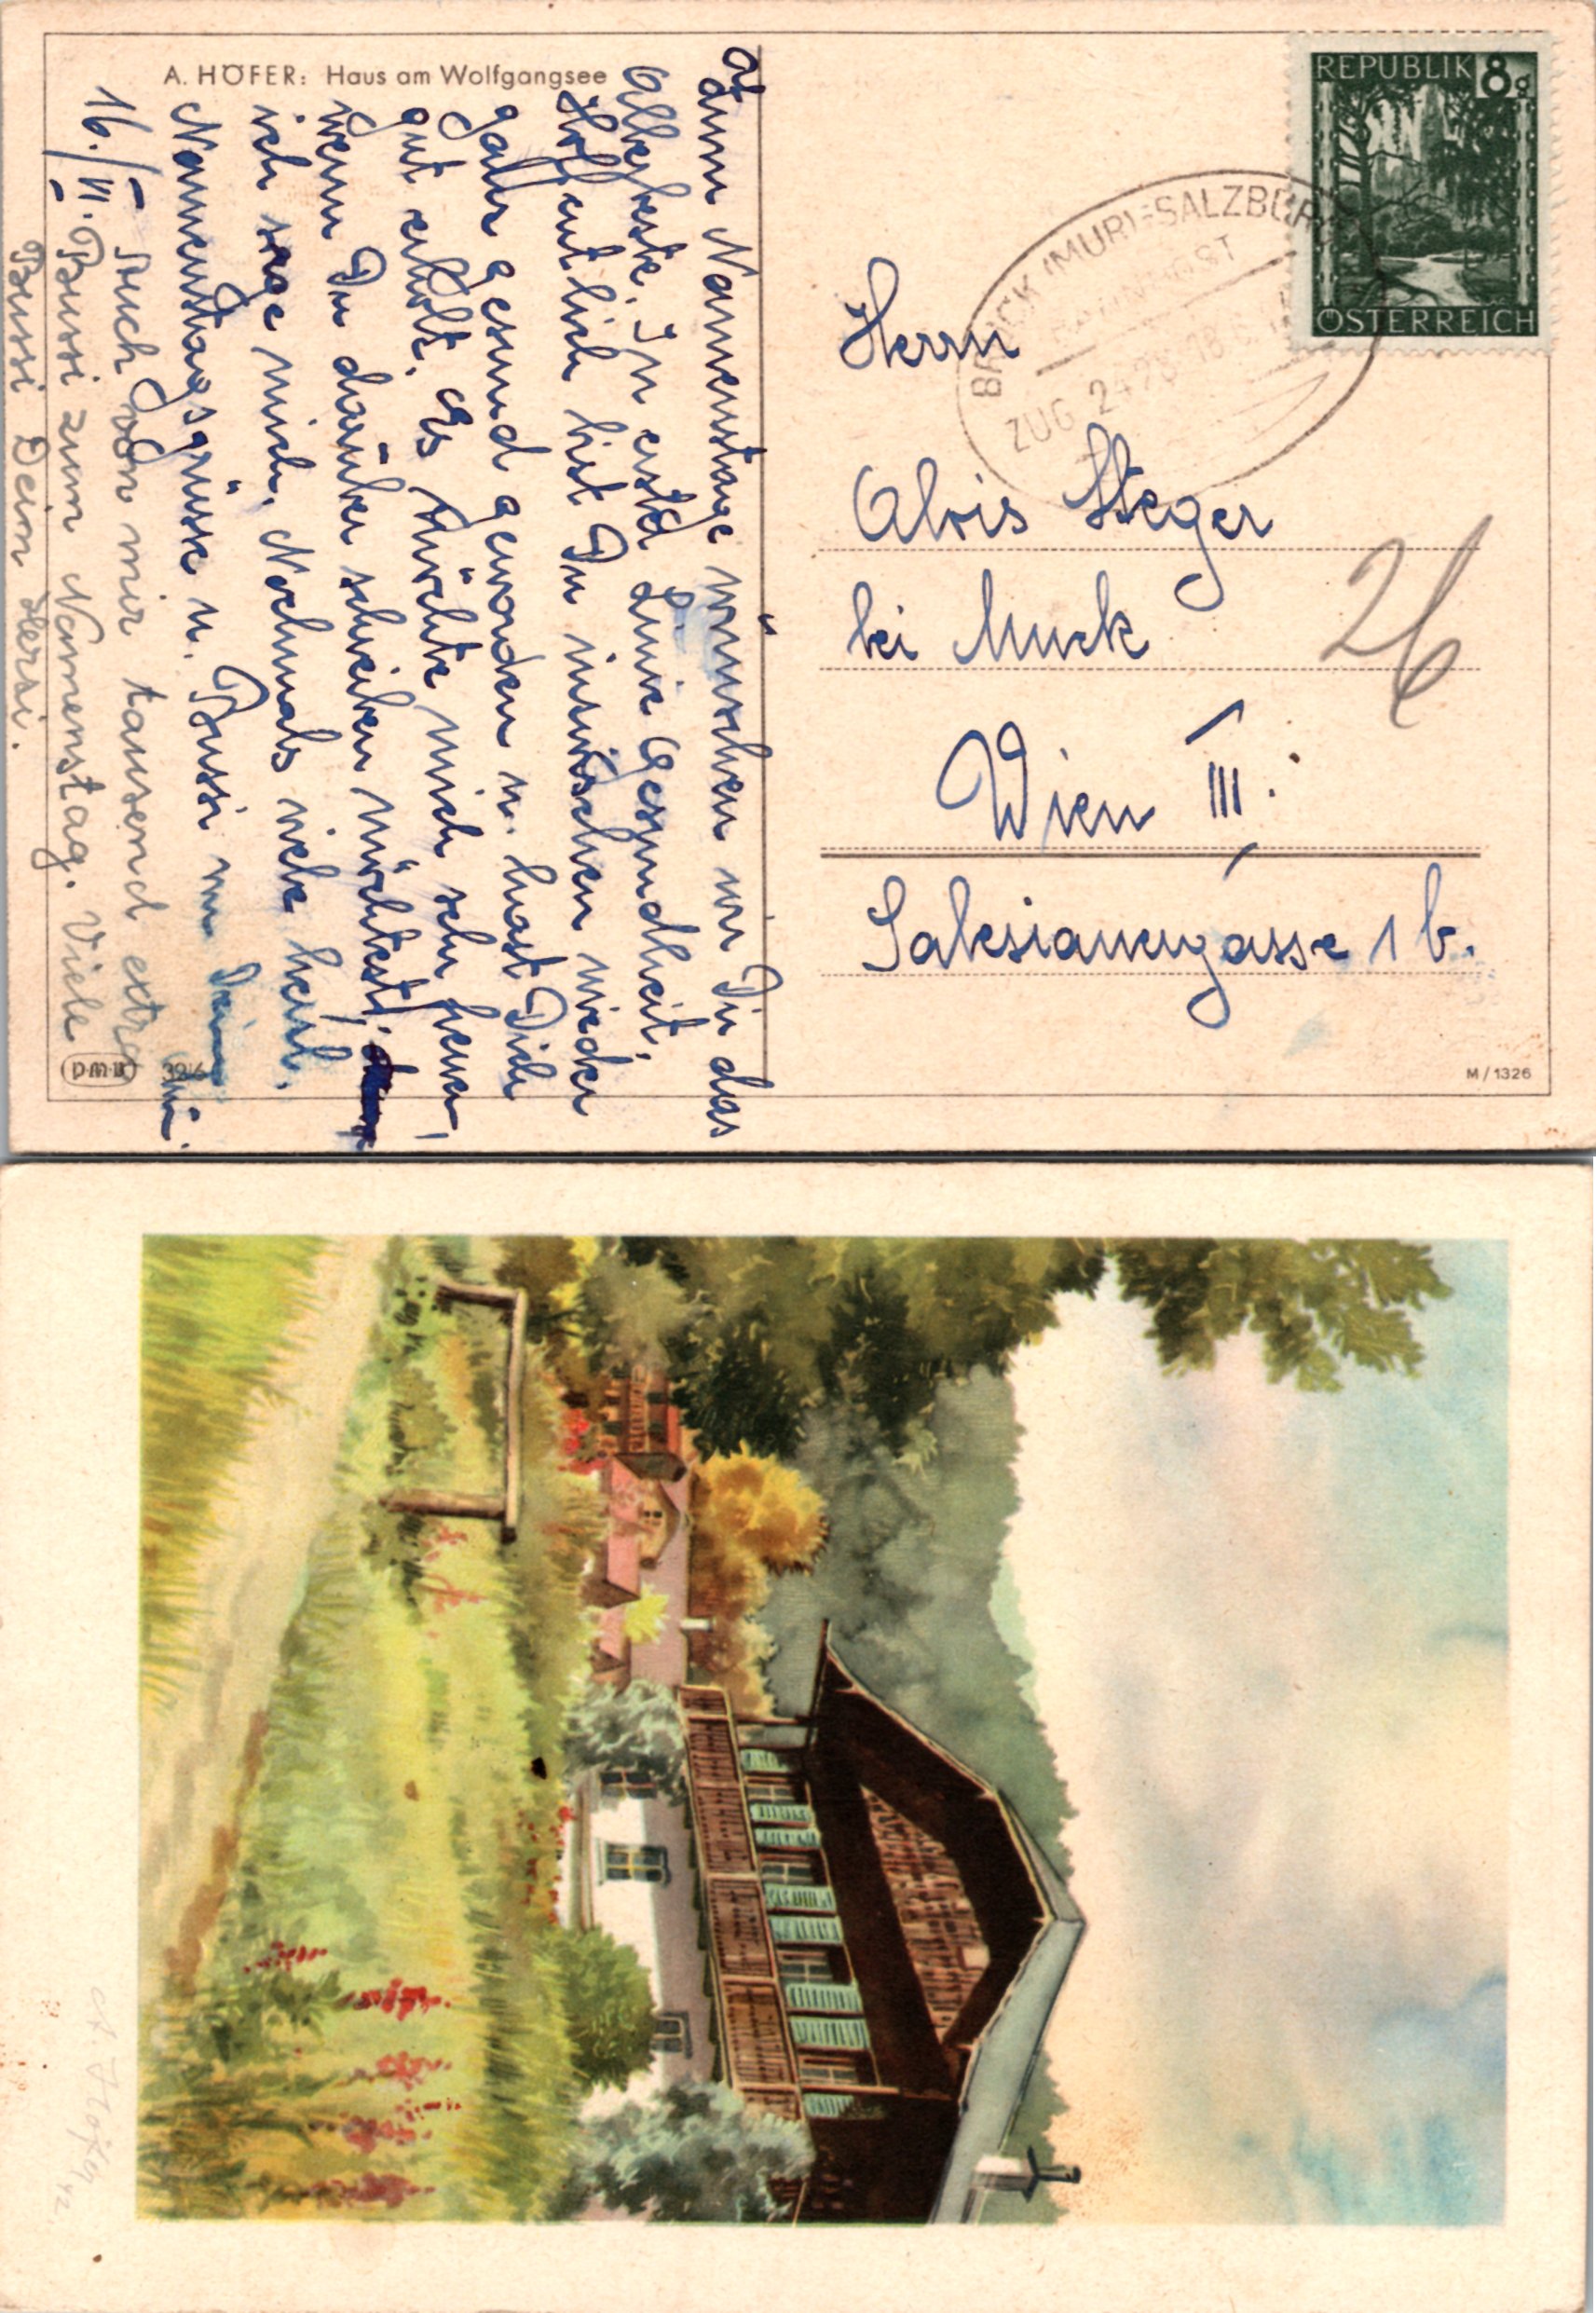 A. HÖFER: Haus am Wolfgangsee
REPUBLIK 8g
ÖSTERREICH
BRUCK (MUR)-SALZBURG
ZUG 2428 18.6.
Herrn
Alois Steger
bei Muck
Wien III.
Salesianergasse 1 b.
26
M/1326
16./VI.
Zum Namenstage wünschen wir Dir das
Allerbeste. In erster Linie Gesundheit.
Hoffentlich bist Du inzwischen wieder
ganz gesund geworden u. hast Dich
gut erholt. Es würde mich sehr freuen,
wenn Du darüber schreiben möchtest, denn
ich sorge mich. Nochmals viele herzl.
Namenstagsgrüsse u. Bussi von Deiner
Mi.
Auch von mir tausend extra
Bussi zum Namenstag. Viele
Bussi Dein Hersi.
pmb
A. Höfer 42